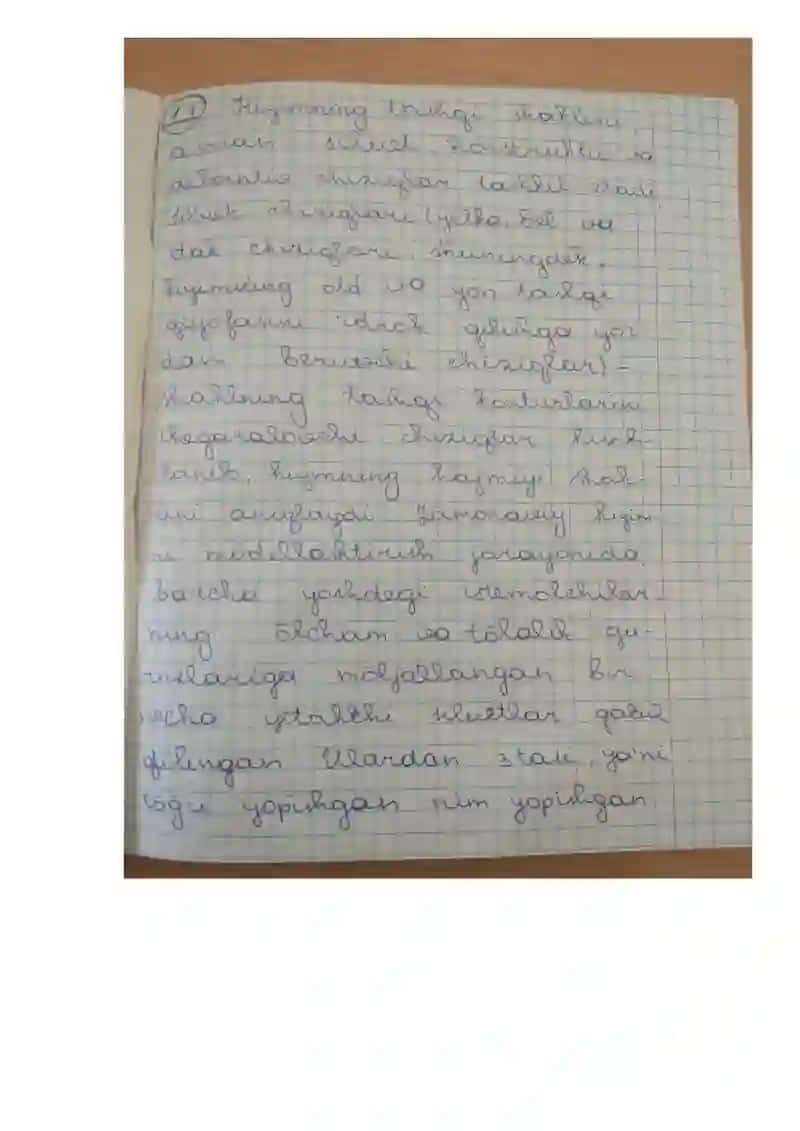 11 Kiyimning tashqi shaklini
asosan siluet, konstruktiv va
dekorativ chiziqlar tashkil etadi
siluet chiziqlari (yelka, bel va
etak chiziqlari, shuningdek,
kiyimning old va yon tashqi
qiyofasini idrok qilishga yor
dam beruvchi chiziqlar) -
shaklning tashqi konturlarini
chegaralovchi chiziqlar
kiyimning hajmiy shak-
lini aniqlaydi Zamonaviy kiyim
ni modellashtirish jarayonida
barcha yoshdagi istemolchilar-
ning ölcham va tölalik gu-
ruhlariga möljallangan bir
necha yetakchi siluetlar qabul
qilingan Ulardan z tak, ya'ni
yopishgan nim yopishgan